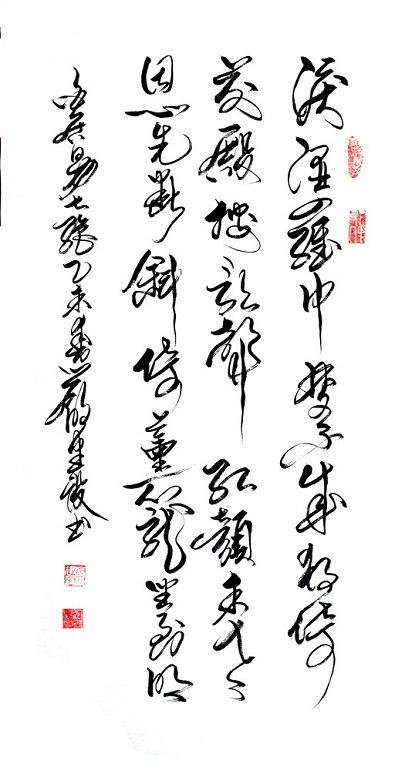 淚濕羅巾夢不成夜
前殿按歌聲紅顏未老
恩先斷斜倚薰籠坐到明
白居易七絕乙未春書